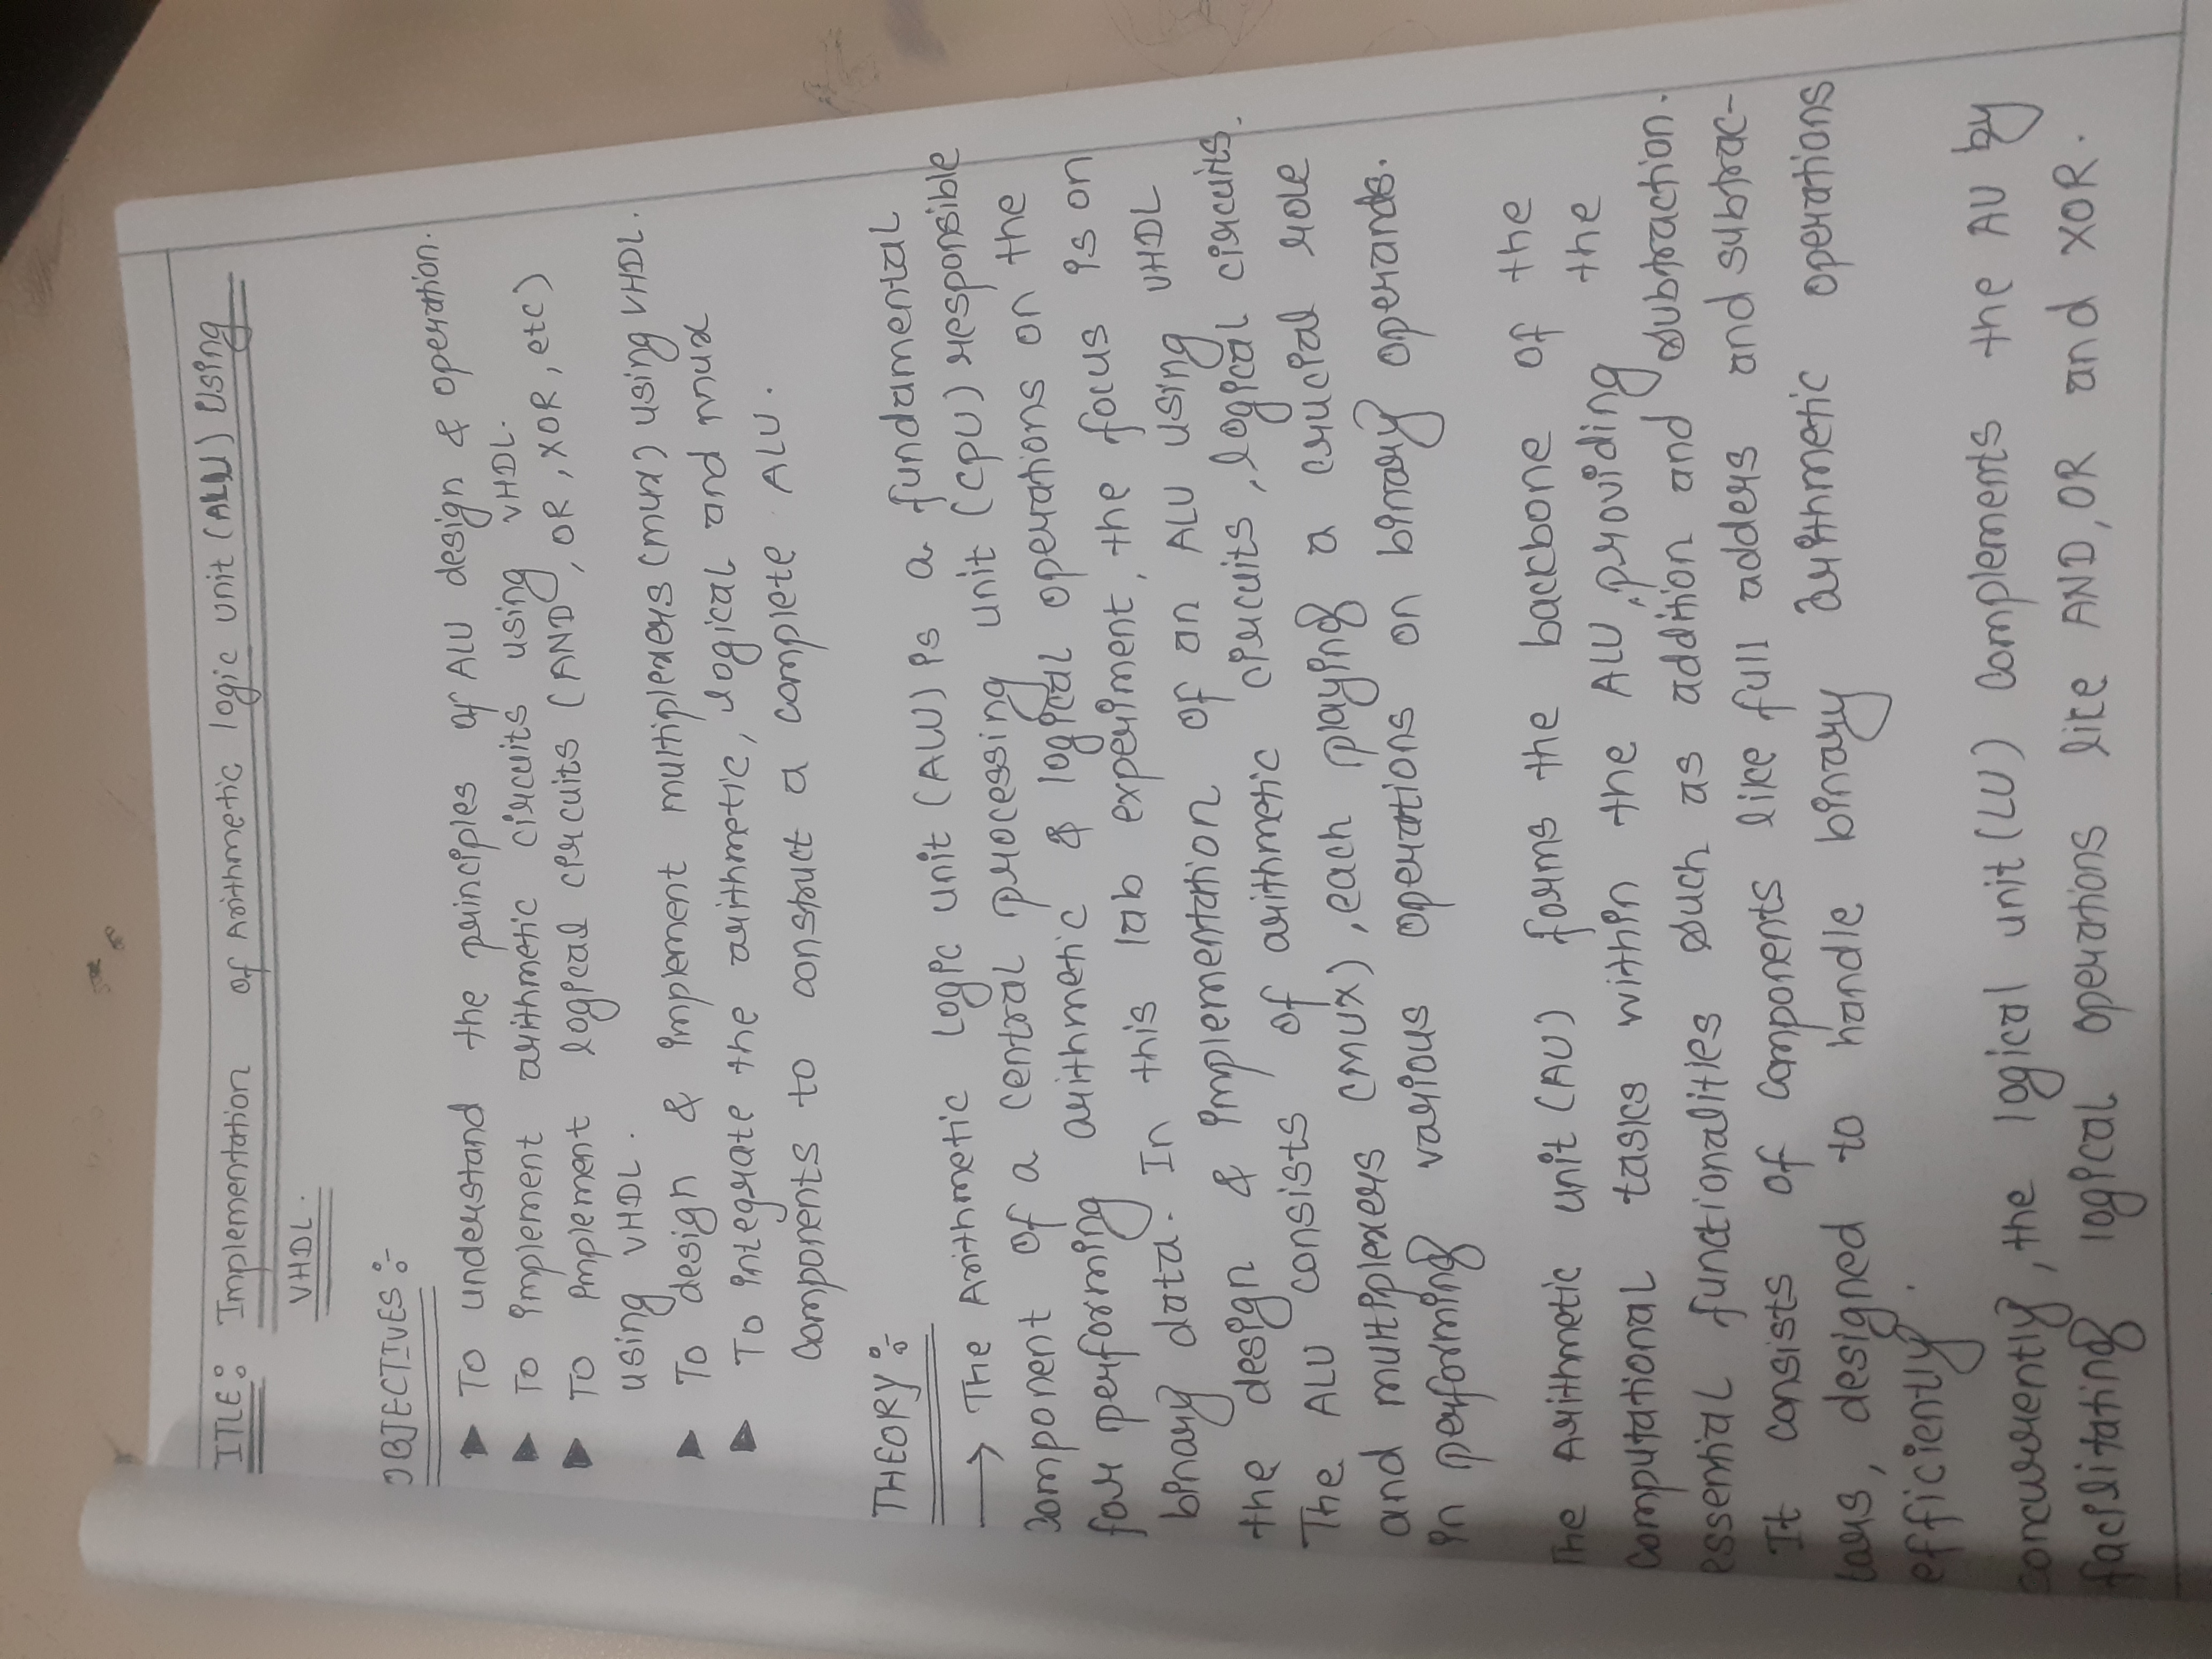 ITLE: Implementation of Arithmetic logic unit (ALU) Using
VHDL.
OBJECTIVES:-
▶ To understand the principles of ALU design & operation.
▶ To implement arithmetic circuits using VHDL.
▶ To implement logical circuits (AND, OR, XOR, etc)
using VHDL.
▶ To design & implement multiplexers (mux) using VHDL.
▶ To integrate the arithmetic, logical and mux
components to construct a complete ALU.
THEORY:-
→ The Arithmetic logic unit (ALU) is a fundamental
component of a central processing unit (CPU) responsible
for performing arithmetic & logical operations on the
binary data. In this lab experiment, the focus is on
the design & implementation of an ALU using VHDL
The ALU consists of arithmetic circuits, logical circuits.
and multiplexers (MUX), each playing a crucial role
in performing various operations on binary operands.
The Arithmetic unit (AU) forms the backbone of the
computational tasks within the ALU, providing the
essential functionalities such as addition and subtraction.
It consists of components like full adders and subtrac-
tors, designed to handle binary arithmetic operations
efficiently.
concurrently, the logical unit (LU) complements the AU by
facilitating logical operations like AND, OR and XOR.